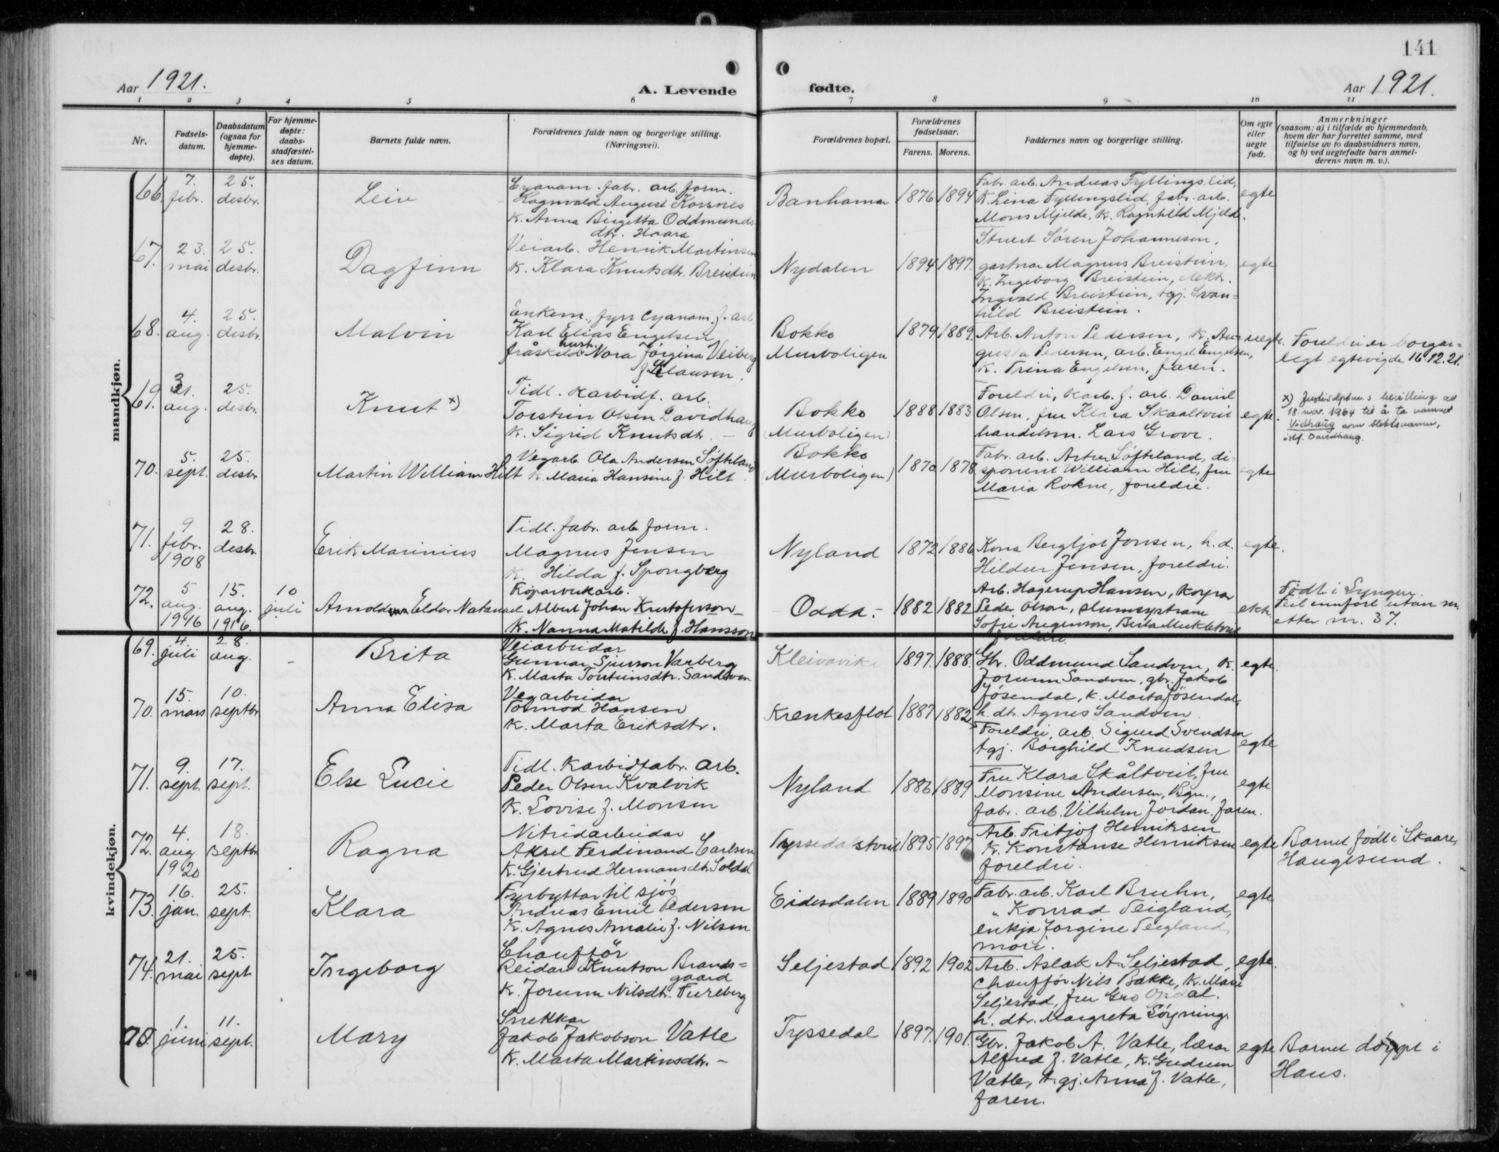 141
Aar 1921.
A. Levende fødte.
Aar 1921.
1 2 3 4 5 6 7 8 9 10 11
Nr.
Fødsels-
datum.
Daabsdatum
(ogsaa for
hjemme-
døpte).
For hjemme-
døpte:
daabs-
stadfæstel-
ses datum.
Barnets fulde navn.
Forældrenes fulde navn og borgerlige stilling.
(Næringsvei).
Forældrenes bopæl.
Forældrenes
fødselsaar.
Farens. Morens.
Faddernes navn og borgerlige stilling.
Om egte
eller
uegte
født.
Anmerkninger
(saasom: a) i tilfælde av hjemmedaab,
hvem der har forrettet samme, med
tilføielse av to daabsvidners navn,
og b) ved uegtefødte barn anmel-
derens navn m. v.).
mandkjøn.
66. 7. febr. 25. desbr. Leiv
Cyanam. fabr. arb. form.
Ragnvald August Korsnes
K. Anna Birgitta Oddmunds-
dtr. Haara
Banhama 1876 1894
Fabr. arb. Andreas Tyttingslid,
K. Lina Tyttingslid, fabr. arb.
Mons Mjelde, K. Ragnhild Mjelde.
egte
67. 23. mai 25. desbr. Dagfinn
Veiarb. Henrik Martinsen
K. Klara Knutsdtr. Breistein
Nydalen 1894 1897
Stuert Søren Johannesen,
gartnar Magnus Breistein,
K. Ingeborg Breistein, elekt.
Ingvald Breistein, tgj. Svan-
hild Breistein.
egte
68. 4. aug. 25. desbr. Malvin
Enkem., fyrr cyanam. f. arb.
Karl Elias Engelsen
fråskilde hustr. Nora Jørgina Veiberg
f. Klausen.
Bokko
Murboligen 1879 1889.
Arb. Anton Pedersen, K. Au-
gusta Pedersen, arb. Engel Engelsen,
K. Trina Engelsen, faren.
uegte
Foreldri er borger-
legt egtevigde 16.12.21.
69. 31. aug. 25. desbr. Knut x)
Tidl. Karbidf. arb.
Torstein Olsen Davidhaug
K. Sigrid Knutsdtr. —
Bokko
(Murboligen) 1888 1883
Foreldri, karb. f. arb. Daniel
Olsen, fru Klara Skaaltveit
handelsm. Lars Grove.
egte.
x) Justisdeptm.s bevilling av
18. nov. 1964 til å ta navnet
Vidhaug som slektsnavn,
idf. Davidhaug.
70. 5. sept. 25. desbr. Martin William Hilt
Vegarb. Ola Andersen Søfteland
K. Maria Hansine f. Hilt.
Bokko
(Murboligen) 1870 1878
Fabr. arb. Søfteland, di-
sponent William Hilt, fru
Maria Rokne, foreldri.
egte
71. 9 febr. 1908 28. desbr. Erik Marinius
Tidl. fabr. arb. form.
Magnus Jensen
K. Hilda f. Spongberg
Nyland 1872 1886
Kona Bergljot Jensen, h. d.
Hildur Jensen, foreldri.
egte.
72. 5 aug. 1916 15. aug. 1916. 10 juli Arnold Eldor Natanael
Røparverkarb.
Albert Johan Kristoferson —
K. Nanna Matilde f. Hansson
Odda. — 1882 1882
Arb. Hagerup Hansen, Korpra
Peder Olson, slumsystrane
Sofie Berta
foreldri.
ekte
Født i Lyngør.
Feil innført utan nr.
etter nr. 37.
kvindekjøn.
69. 4. juli 28. aug. Brita
Veiarbeidar
Gunnar Sjurson Varberg
K. Marta Torsteinsdtr. Sandven
Kleivavik 1897. 1888.
Gbr. Oddmund Sandven, K.
Jorunn Sandven, gbr. Jakob
Jøsendal, K. Marta Jøsendal,
h. dtr. Agnes Sandven.
egte.
70. 15. mars 10. septbr. Anna Elisa
Vegarbeidar
Tormod Hansen
K. Marta Eriksdtr.
Krenkesflot 1887 1882
Foreldri, arb. Sigurd Svendsen
tgj. Borghild Knudsen
egte
71. 9 sept. 17. sept. Else Lucie
Tidl. Karbidfabr. arb.
Peder Olsen Kvalvik
K. Lovise f. Monsen
Nyland 1886 1889
Fru Klara Skåltveit, fru
Monsine Andersen, Bgn.,
fabr. arb. Vilhelm Jordan, faren.
egte
72. 4. aug. 1920 18. septbr. Ragna
Nitridarbeidar
Aksel Ferdinand Carlsen
K. Gjertrud Hermansdtr. Soldal
Tyssedalstrond 1895 1897
Arb. Fritjof Henriksen
K. Konstanse Henriksen
foreldri.
egte
Barnet født i Skaare,
Haugesund.
73. 16. jan. 25. sept. Klara
Fyrbyttar til sjøs
Andreas Emil Pedersen
K. Agnes Amalie f. Nilsen
Eidesdalen 1889 1890
Fabr. arb. Karl Bruhn,
" Konrad Teigland,
enkja Jørgine Teigland,
mori.
egte
74. 21. mai 25. sept. Ingeborg
Chauffør
Reidar Knutson Brands-
gaard
K. Jorunn Nilsdtr. Tureberg
Seljestad 1892 1902
Arb. Aslak A. Seljestad,
chauffør Nils Bakke, K. Mari
Seljestad, fru Gro Opdal.
h. dtr. Margreta Løyning.
egte.
75. 1. juni 11. sept. Mary
Snekkar
Jakob Jakobson Vatle
K. Marta Martinsdtr. —
Tyssedal 1897. 1901.
Gbr. Jakob A. Vatle, lærar
Alfred J. Vatle, K. Gudrun
Vatle, tgj. Anna J. Vatle,
faren.
egte
Barnet døypt i
Haus.